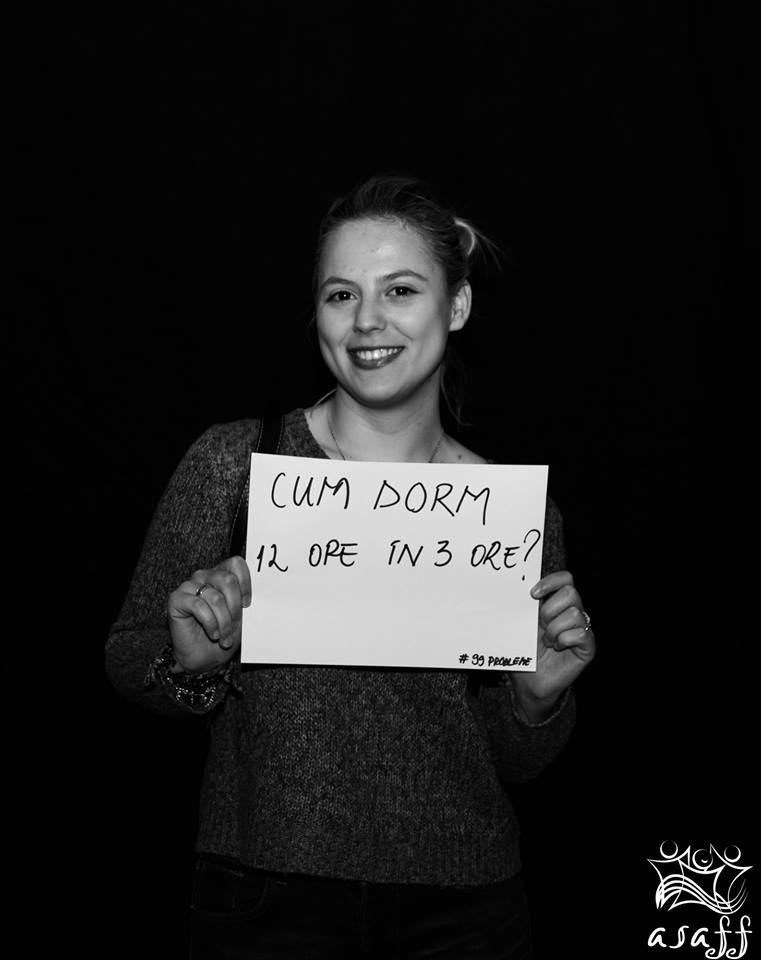 CUM DORM
12 ORE ÎN 3 ORE?
# 99 PROBLEME
asaff